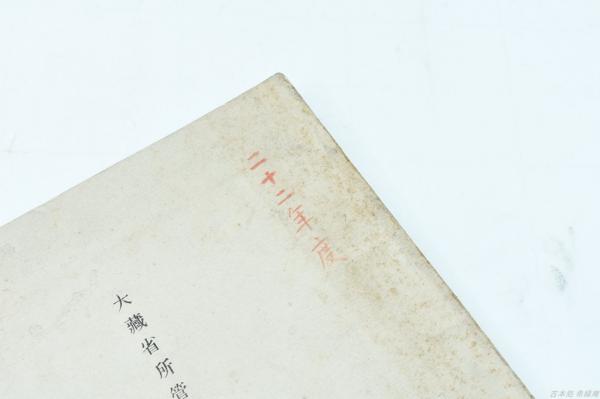 二十二年度
大藏省所管
古本処 希縁庵